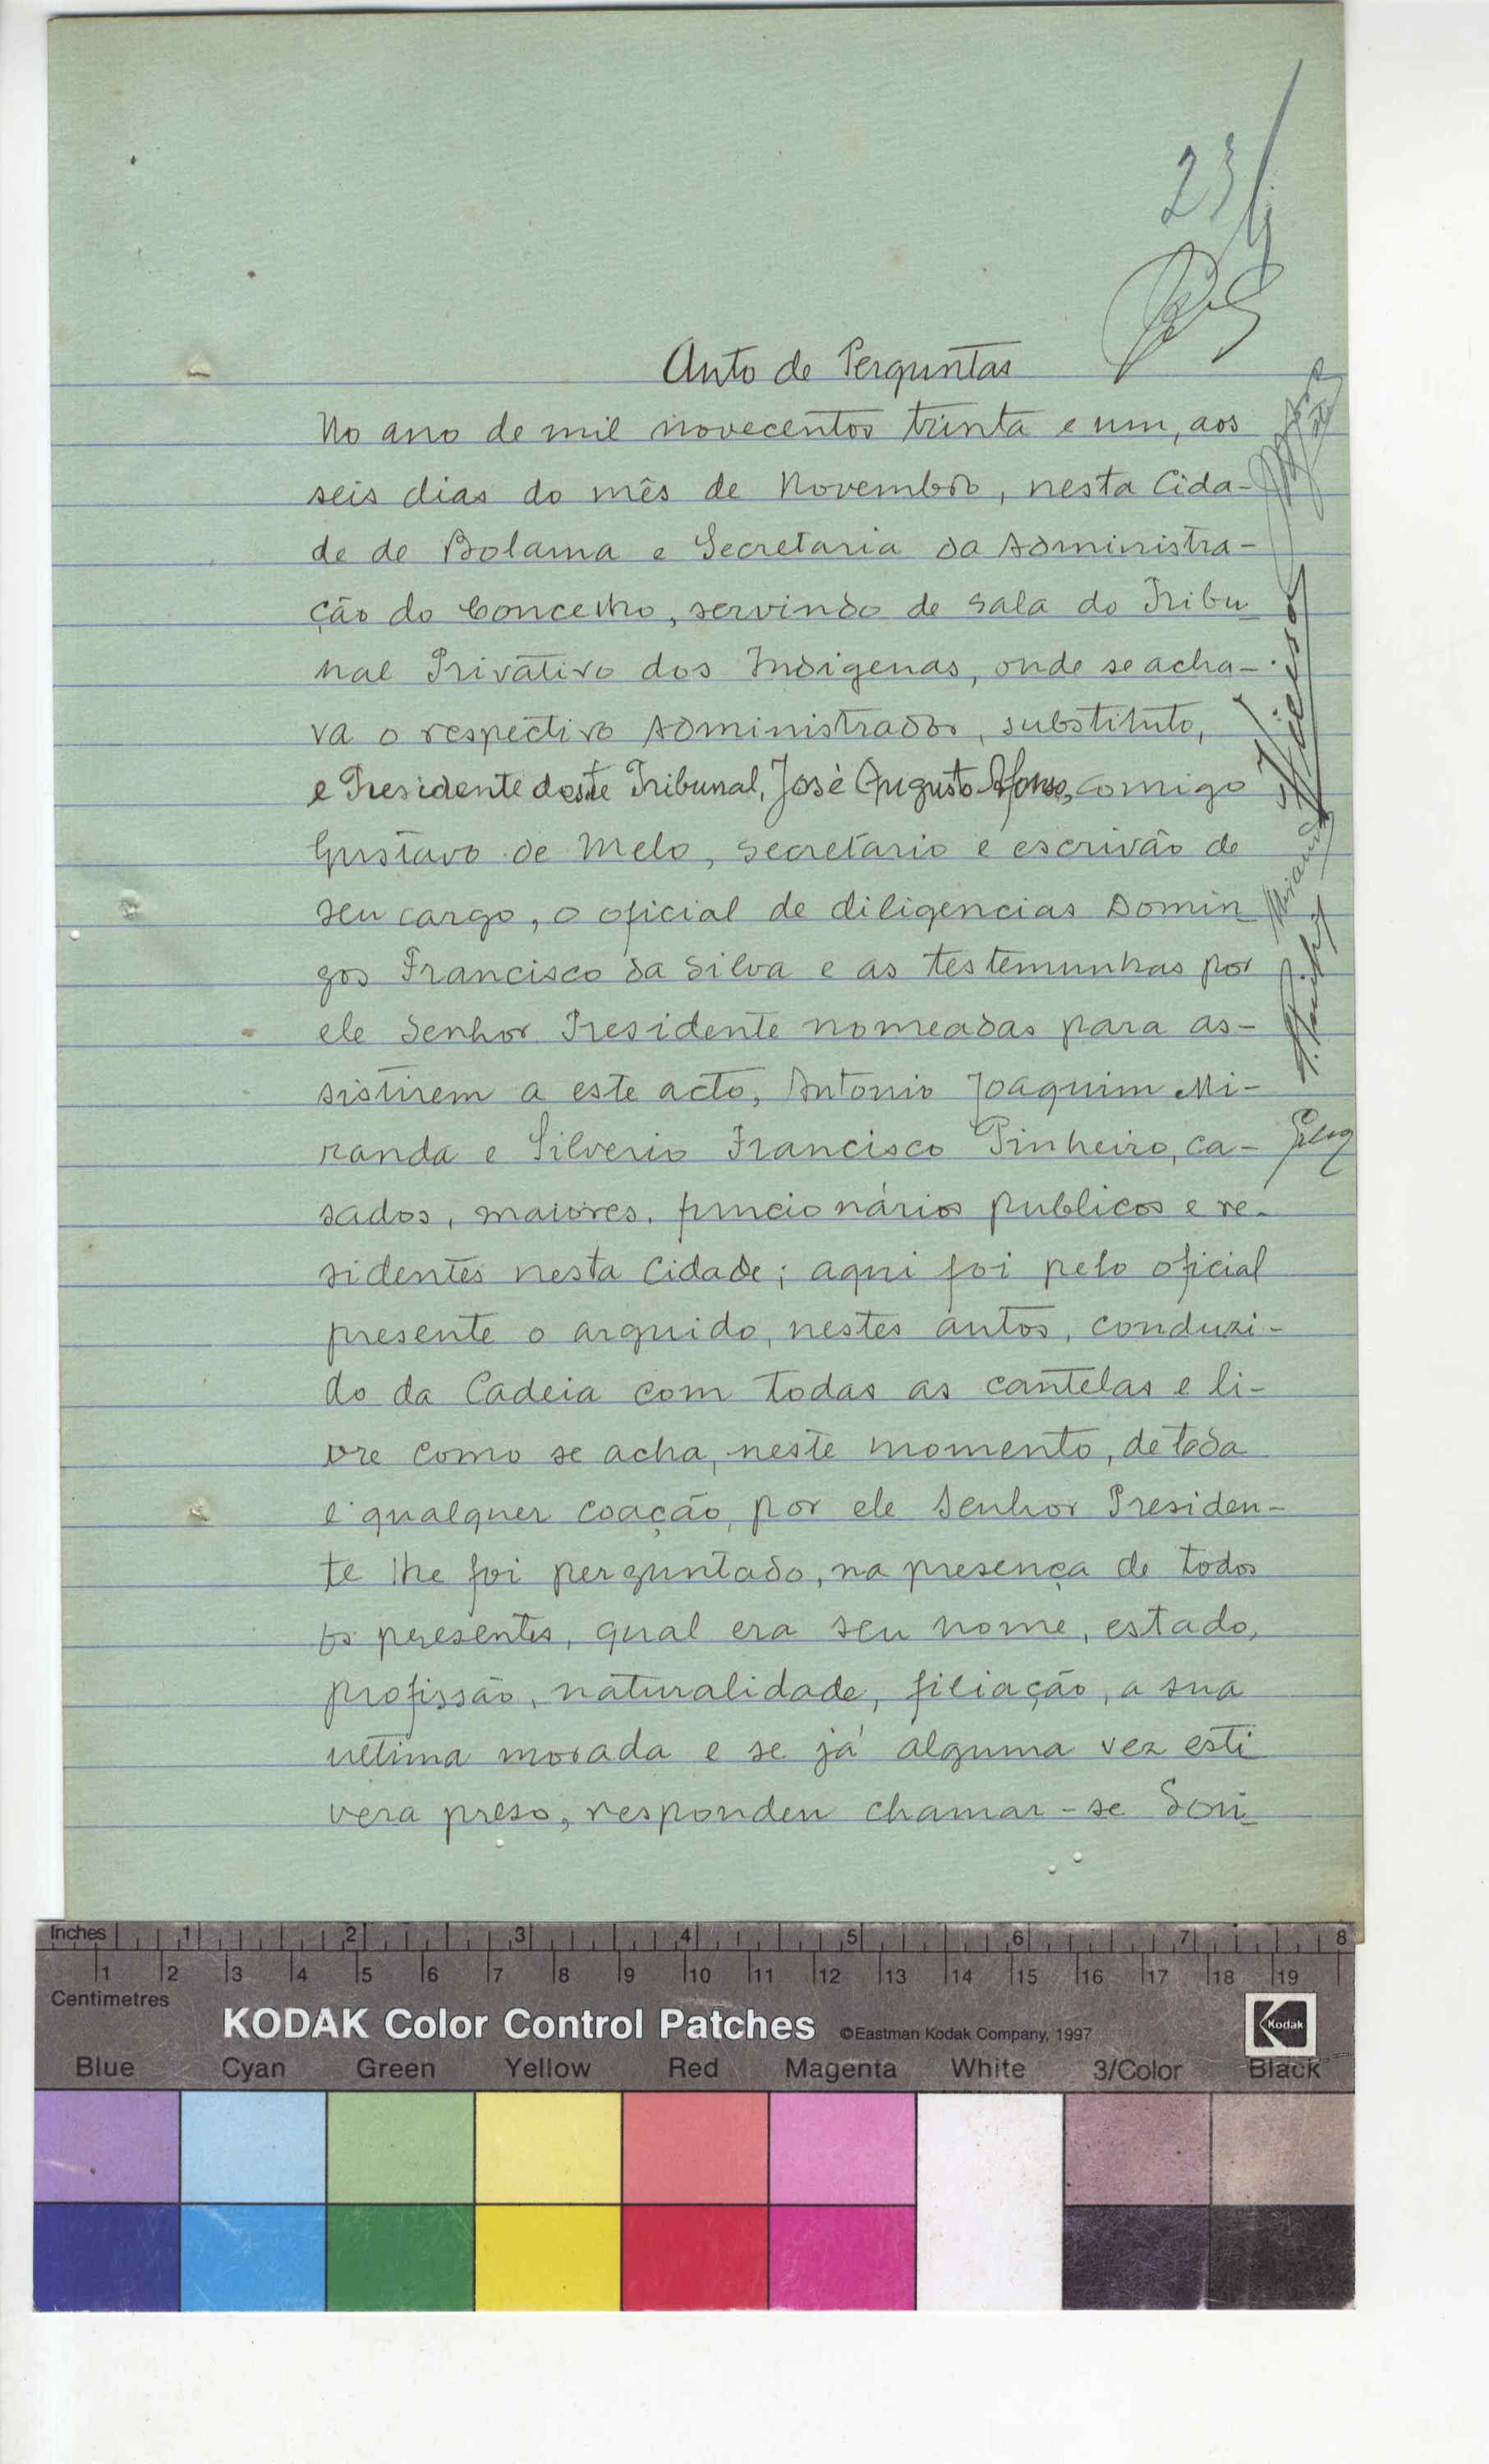 23
Auto de Perguntas
No ano de mil novecentos trinta e um, aos
seis dias do mês de Novembro, nesta Cida-
de de Bolama e Secretaria da Administra-
ção do Concelho, servindo de sala do Tribu
nal Privativo dos Indigenas, onde se acha-
va o respectivo Administrador, substituto,
e Presidente deste Tribunal, José Augusto Afonso, comigo
Gustavo de Melo, secretario e escrivão de
seu cargo, o oficial de diligencias Domin
gos Francisco da Silva e as testemunhas por
ele Senhor Presidente nomeadas para as-
sistirem a este acto, Antonio Joaquim Mi-
randa e Silverio Francisco Pinheiro, ca-
sados, maiores, funcionários publicos e re-
sidentes nesta Cidade; aqui foi pelo oficial
presente o arguido, nestes autos, conduzi-
do da Cadeia com todas as cautelas e li-
vre como se acha, neste momento, de toda
e qualquer coação, por ele Senhor Presiden-
te lhe foi perguntado, na presença de todos
os presentes, qual era seu nome, estado,
profissão, naturalidade, filiação, a sua
ultima morada e se já alguma vez esti
vera preso, respondeu chamar-se Sori
Miranda
Silva
Inches 1 2 3 4 5 6 7 8
1 2 3 4 5 6 7 8 9 10 11 12 13 14 15 16 17 18 19
Centimetres
KODAK Color Control Patches ©Eastman Kodak Company, 1997 Kodak
Blue Cyan Green Yellow Red Magenta White 3/Color Black